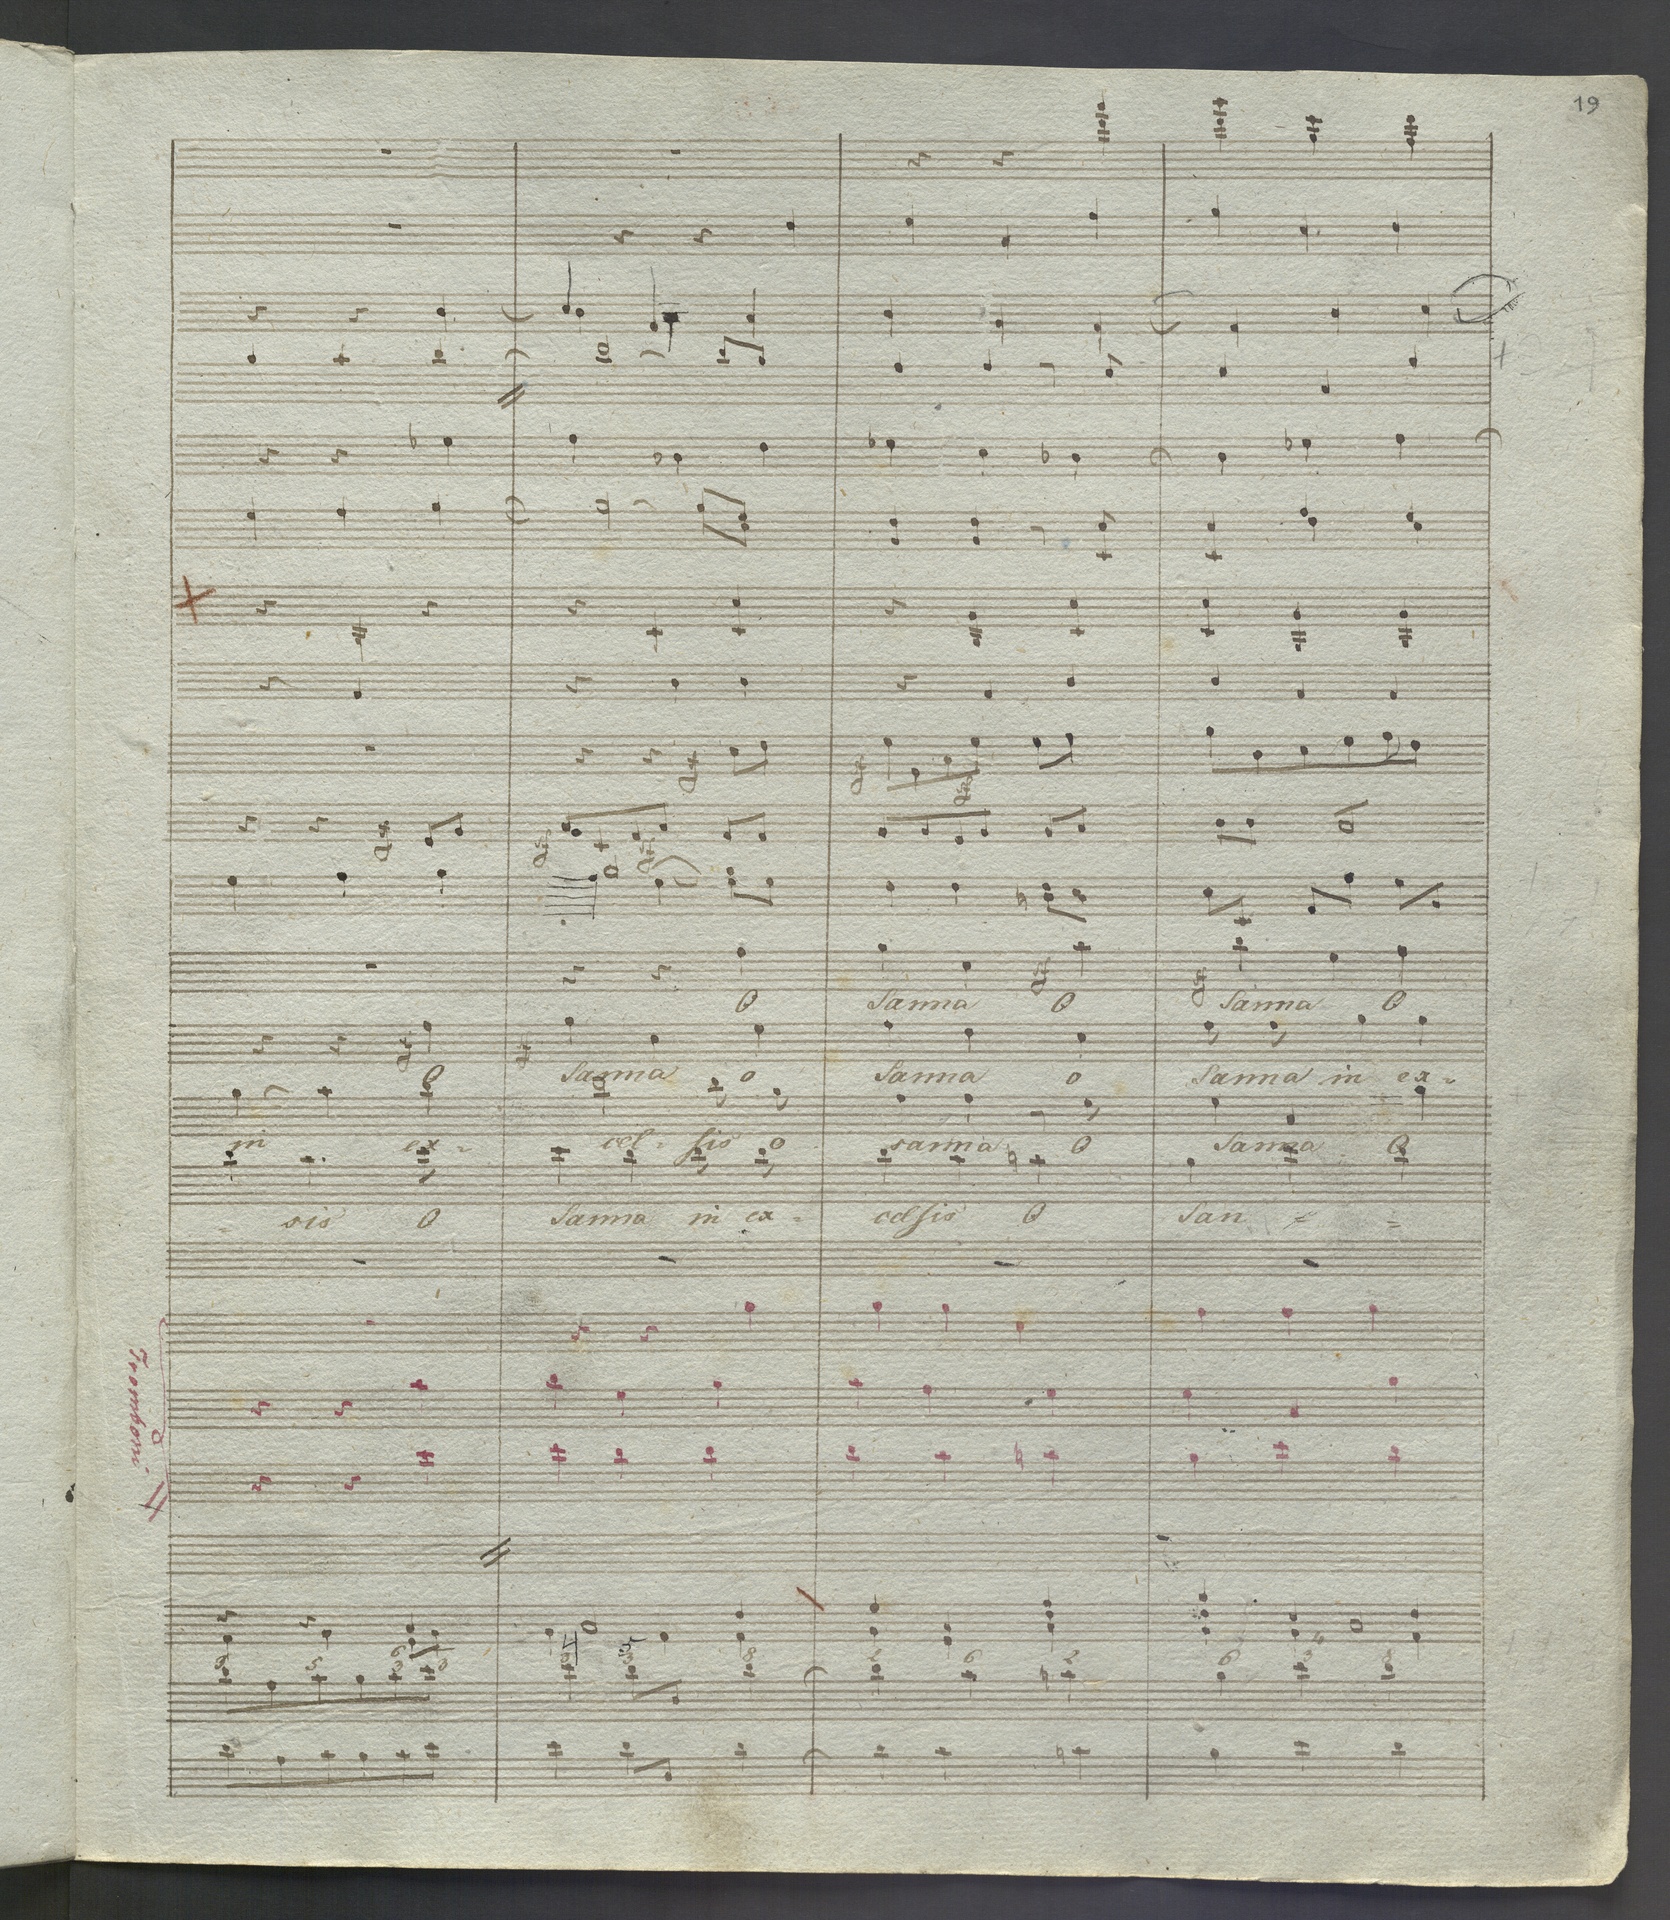 19
O Sanna O Sanna O
O Sanna o Sanna o Sanna in ex-
in ex- cel- sis o sanna O Sanna O
- sis O Sanna in ex- celsis O San - -
Tromboni